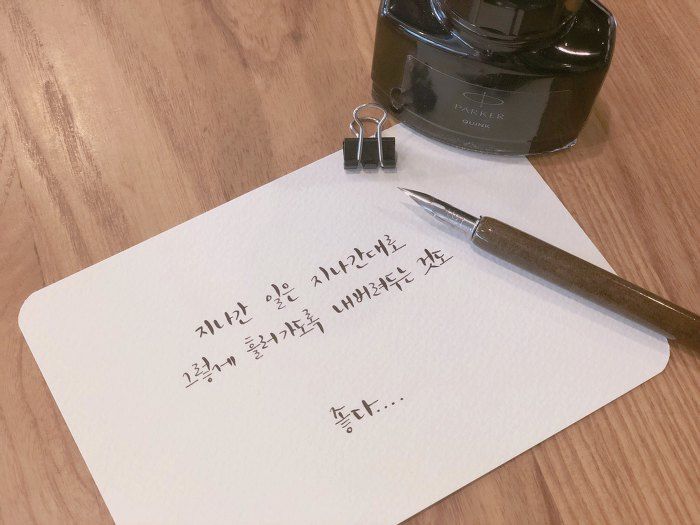 PARKER
QUINK
지나간 일은 지나간대로
그렇게 흘러가도록 내버려두는 것도
좋다....